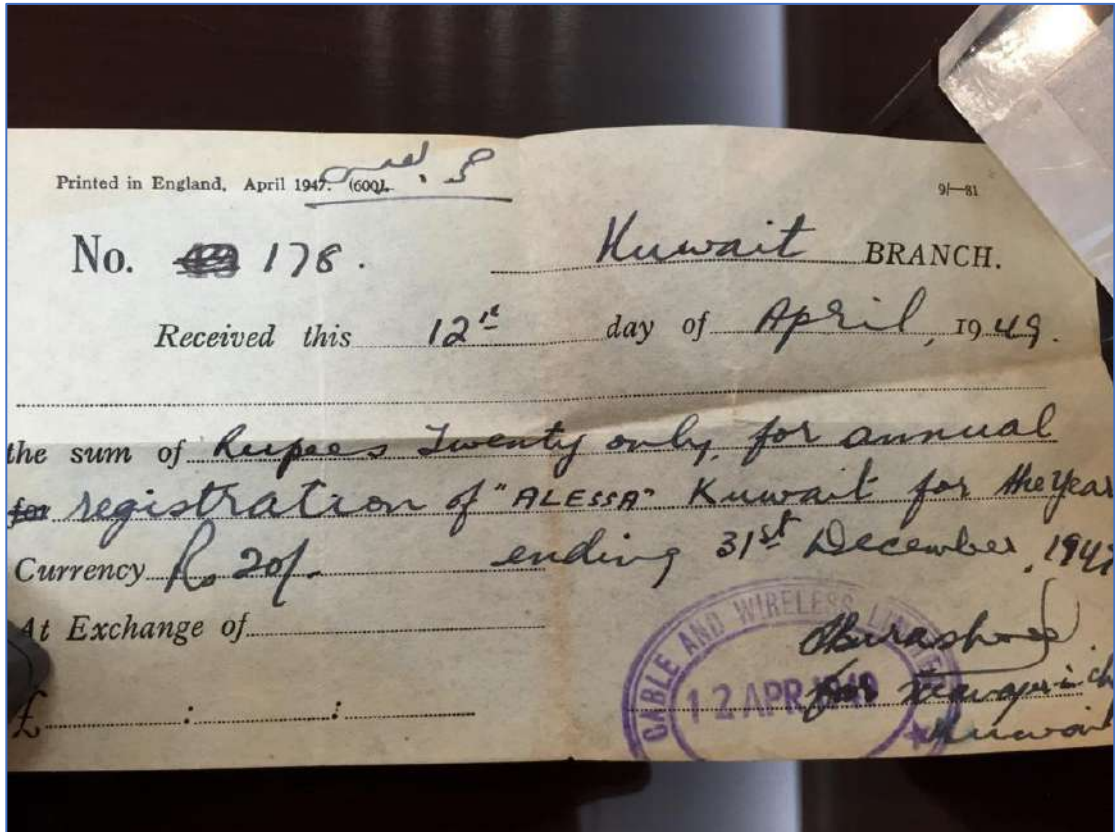 Printed in England, April 1947. (600).
9/—81
No. 178.
Kuwait BRANCH.
Received this 12th day of April, 1949.
the sum of Rupees Twenty only, for annual
for registration of "ALESSA" Kuwait for the year
Currency Rs 20/- ending 31st December, 194
At Exchange of
£ : :
CABLE AND WIRELESS LIMITED
12 APR 1949
for Manager in Ch
Kuwait